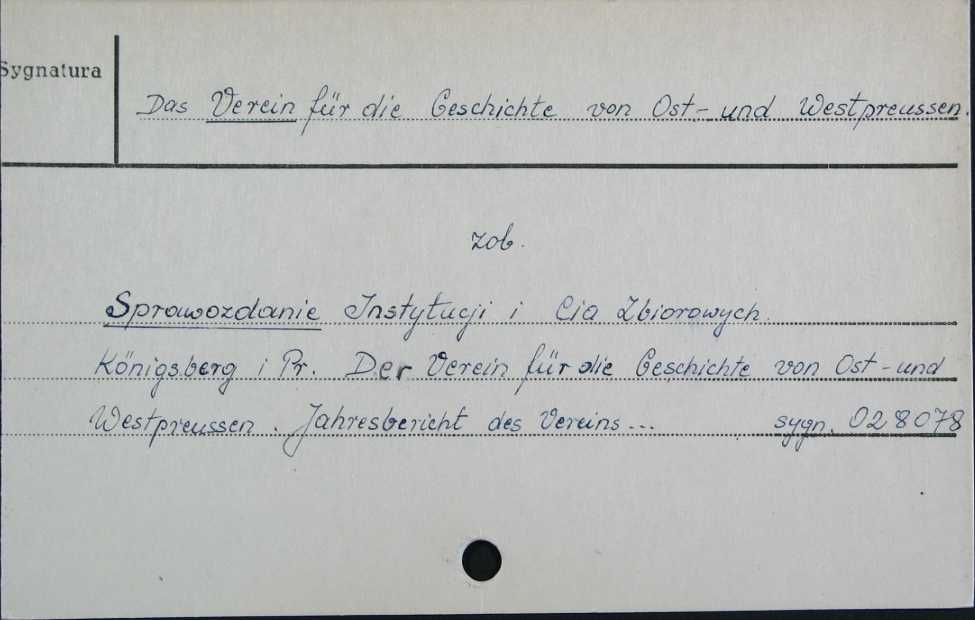 Sygnatura
Das Verein für die Geschichte von Ost- und Westpreussen.
zob.
Sprawozdanie Instytucji i Cia Zbiorowych.
Königsberg i Pr. Der Verein für die Geschichte von Ost- und
Westpreussen. Jahresbericht des Vereins... sygn. 028078